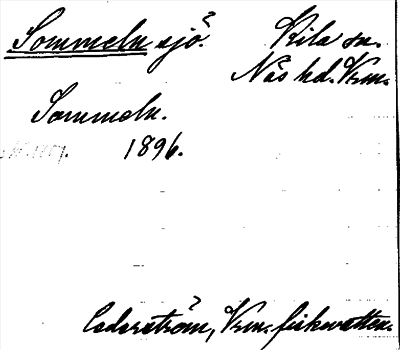 Sommeln sjö. Kila sn.
Näs hd. Vrm.
Sommeln.
1896.
Cederström, Vrm. fiskevatten.